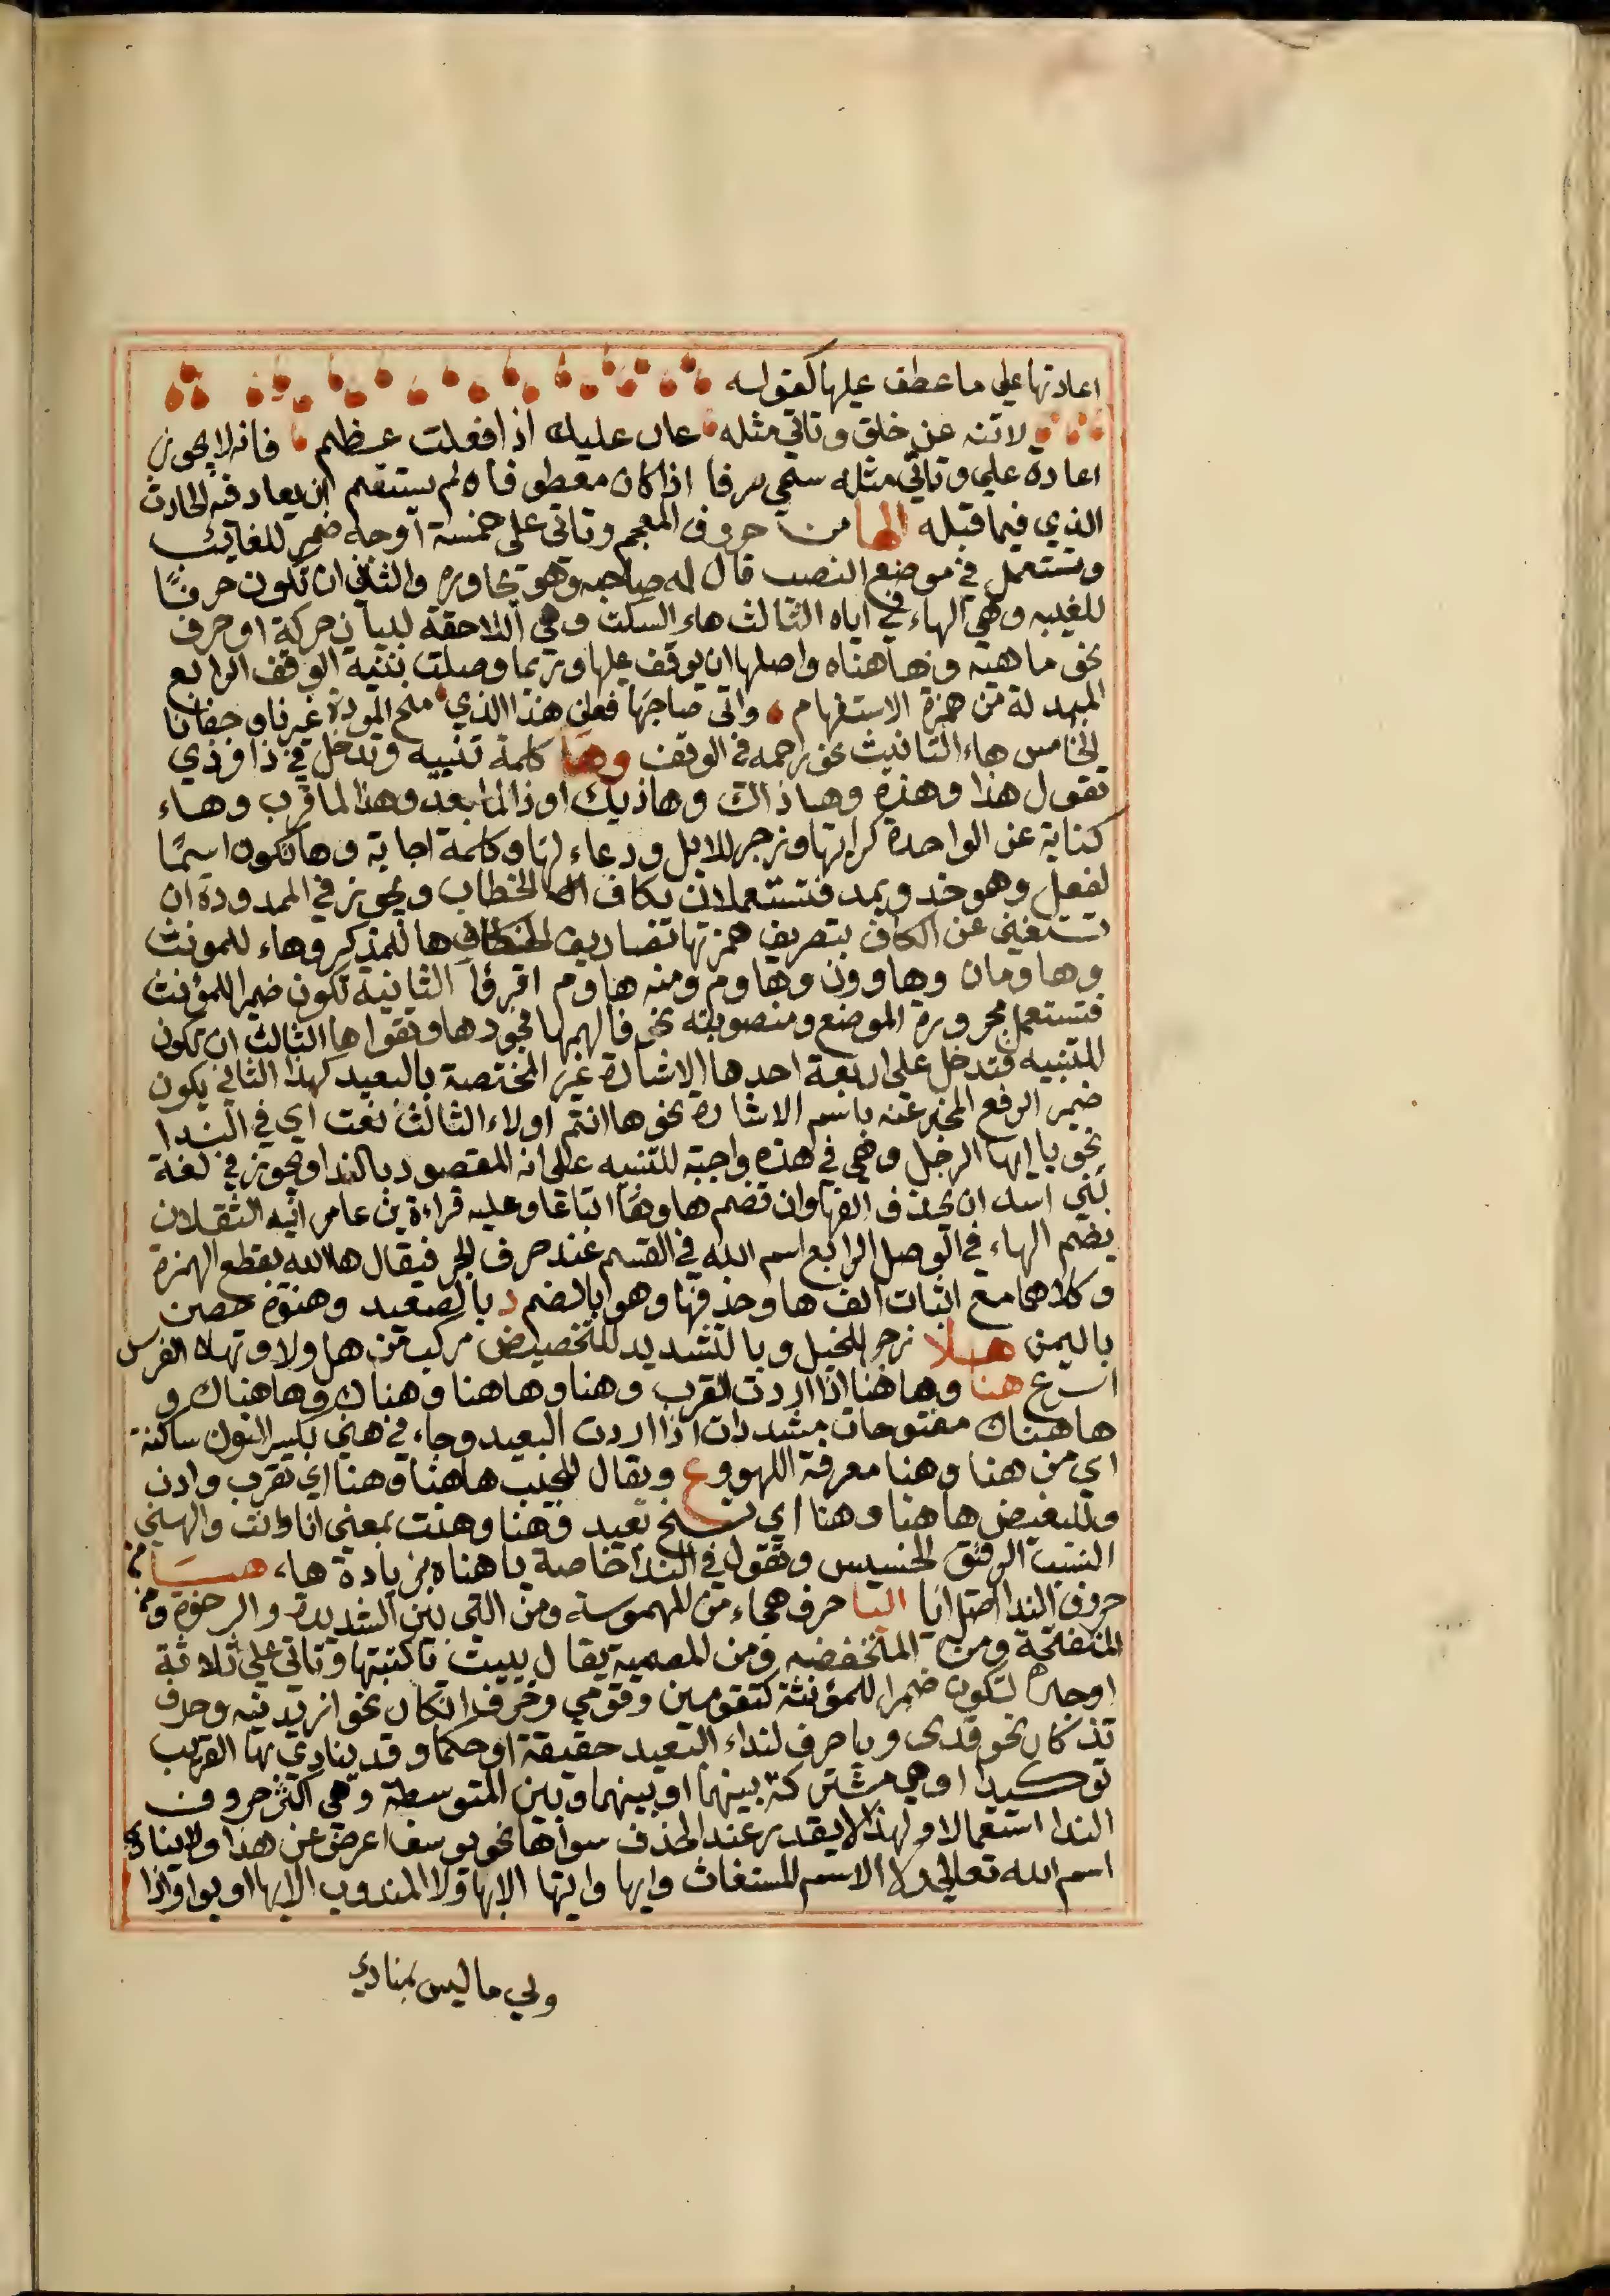 اعادتها علي ما عطف عليها كقوله
لا تنه عن خلق وتاتي مثله عار عليك اذا فعلت عظيم فانه لا يجوز
اعادة علي وتاتي مثله سمي صرفا اذا كان معطوفا ولم يستقم ان يعاد فيه الحادث
الذي فيما قبله الها من حروف المعجم وتاتي علي خمسة اوجه ضمير للغائب
وتستعمل في موضع النصب قال له صاحبه وهو يحاوره والثاني ان تكون حرفًا
للغيبه وهي الهاء في اياه الثالث هاء السكت وهي اللاحقة لبيان حركة او حرف
نحو ماهيه وهاهناه واصلها ان يوقف عليها وربما وصلت بنية الوقف الرابع
المبدلة من همزة الاستفهام واتي صاحبها فقلن هذا الذي منح المودة غيرنا وجفانا
الخامس هاء التانيث نحو رحمه في الوقف وها كلمة تنبيه وتدخل في ذا وذي
تقول هذا وهذه وهاذاك وهاذيك او ذا لما بعد وهذا لما قرب وهاء
كناية عن الواحدة كرايتها وزجر للابل ودعاء لها وكلمة اجابة وها تكون اسمًا
لفعل وهو خذ ويمد فتستعملان بكاف الخطاب ويجوز في الممدودة ان
تستغني عن الكاف بتصريف همزتها تصاريف الكاف ها للمذكر وهاء للمونث
وهاومان وهاوون وهاوم ومنه هاوم اقرؤا الثانية تكون ضميرا للمؤنث
فتستعمل مجرورة الموضع ومنصوبته نحو فالهمها فجورها وتقواها الثالث ان تكون
للتنبيه فتدخل علي اربعة احدها الاشارة غير المختصة بالبعيد كهذا الثاني يكون
ضمير الرفع المخبر عنه باسم الاشارة نحو ها انتم اولاء الثالث نعت اي في الندا
نحو يا ايها الرجل وهي في هذه واجبة للتنبيه علي انه المقصود بالندا ويجوز في لغة
بني اسد ان تحذف الفها وان تضم هاوها اتباعا وعليه قراءة بن عامر ايه الثقلان
بضم الهاء في الوصل الرابع اسم الله في القسم عند حرف الجر فيقال ها الله بقطع الهمزة
وكلاهما مع اثبات الف ها وحذفها وهو بالضم د بالصعيد وهنوة حصن
باليمن هلا زجر للخيل وبالتشديد للتحضيض مركب من هل ولا وتهلا الفرس
اسرع هنا وهاهنا اذا اردت القرب وهنا وهاهنا وهناك وهاهناك و
هاهناك مفتوحات مشددات اذا اردت البعيد وجاء في هني بكسر النون ساكنة
اي من هنا وهنا معرفة اللهو وع ويقال للحبيب هاهنا وهنا اي تقرب وادن
وللبغيض هاهنا وهنا اي تنح بعيد وهنا وهنت بمعني انا وانت والهني
النسب الدقيق الخسيس وتقول في الندا خاصة يا هناه بزيادة هاء هيا من
حروف الندا اصله ايا اليا حرف هجاء من المهموسة ومن التي بين الشديدة والرخوة ومن
المنفتحة ومن المنخفضه ومن المصمتة يقال ييت يا كتبتها وتاتي علي ثلاثة
اوجه تكون ضميرا للمؤنثة كتقومين وقومي وحرف انكار نحو ازيدنيه وحرف
تذكار نحو قدي ويا حرف لنداء البعيد حقيقة او حكما وقد ينادي بها القريب
توكيدا وهي مشتركة بينهما او بينهما وبين المتوسطة وهي اكثر حروف
الندا استعمالا ولهذا لا يقدر عند الحذف سواها نحو يوسف اعرض عن هذا ولا ينادي
اسم الله تعالي ولا الاسم المستغاث وايها وايتها الا بها ولا المندوب الا بها او بوا واذا
ولي ما ليس بمنادي